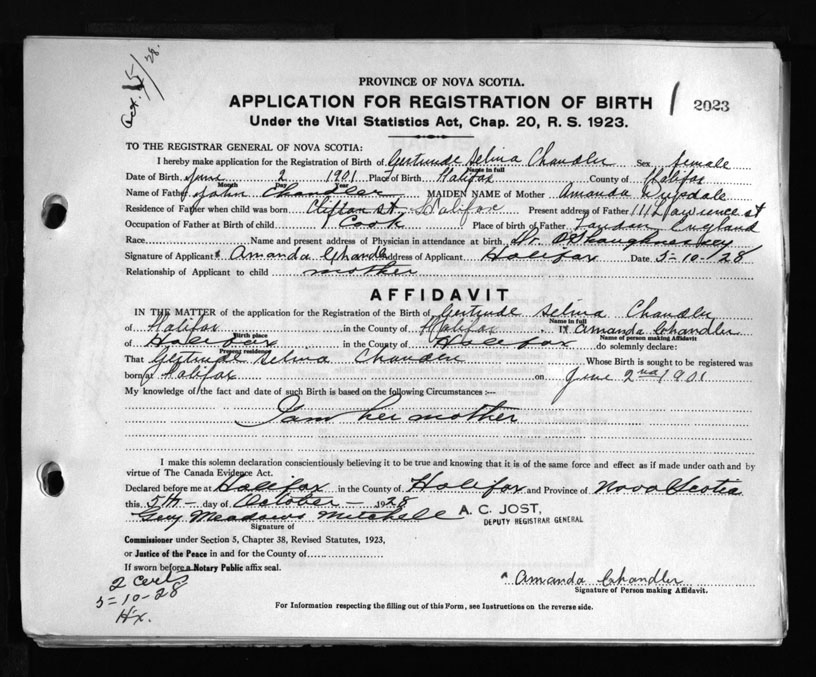 Oct. 5/28.
PROVINCE OF NOVA SCOTIA.
APPLICATION FOR REGISTRATION OF BIRTH
2023
Under the Vital Statistics Act, Chap. 20, R. S. 1923.
TO THE REGISTRAR GENERAL OF NOVA SCOTIA:
I hereby make application for the Registration of Birth of Gertrude Selina Chandler Sex female
Name in full
Date of Birth June 2 1901 Place of Birth Halifax County of Halifax
Month Day Year
Name of Father John Chandler MAIDEN NAME of Mother Amanda Drysdale
Residence of Father when child was born Clifton St. Halifax Present address of Father 111 Lawrence st
Occupation of Father at Birth of child Cook Place of birth of Father London England
Race Name and present address of Physician in attendance at birth Dr. O'Shaughnessey
Signature of Applicant Amanda Chandler Address of Applicant Halifax Date 5-10-/28
Relationship of Applicant to child mother
AFFIDAVIT
IN THE MATTER of the application for the Registration of the Birth of Gertrude Selina Chandler
Name in full
of Halifax in the County of Halifax I, Amanda Chandler
Birth place Name of person making Affidavit
of Halifax in the County of Halifax do solemnly declare:
Present residence
That Gertrude Selina Chandler Whose Birth is sought to be registered was
born at Halifax on June 2nd 1901
My knowledge of the fact and date of such Birth is based on the following Circumstances :—
I am her mother
I make this solemn declaration conscientiously believing it to be true and knowing that it is of the same force and effect as if made under oath and by
virtue of The Canada Evidence Act.
Declared before me at Halifax in the County of Halifax and Province of Nova Scotia
this 5th day of October 1928
Guy Meadows Mitchell A. C. JOST,
DEPUTY REGISTRAR GENERAL
Signature of
Commissioner under Section 5, Chapter 38, Revised Statutes, 1923,
or Justice of the Peace in and for the County of
If sworn before a Notary Public affix seal.
2 certs
5-10-28
Hx.
Amanda Chandler
Signature of Person making Affidavit.
For Information respecting the filling out of this Form, see Instructions on the reverse side.